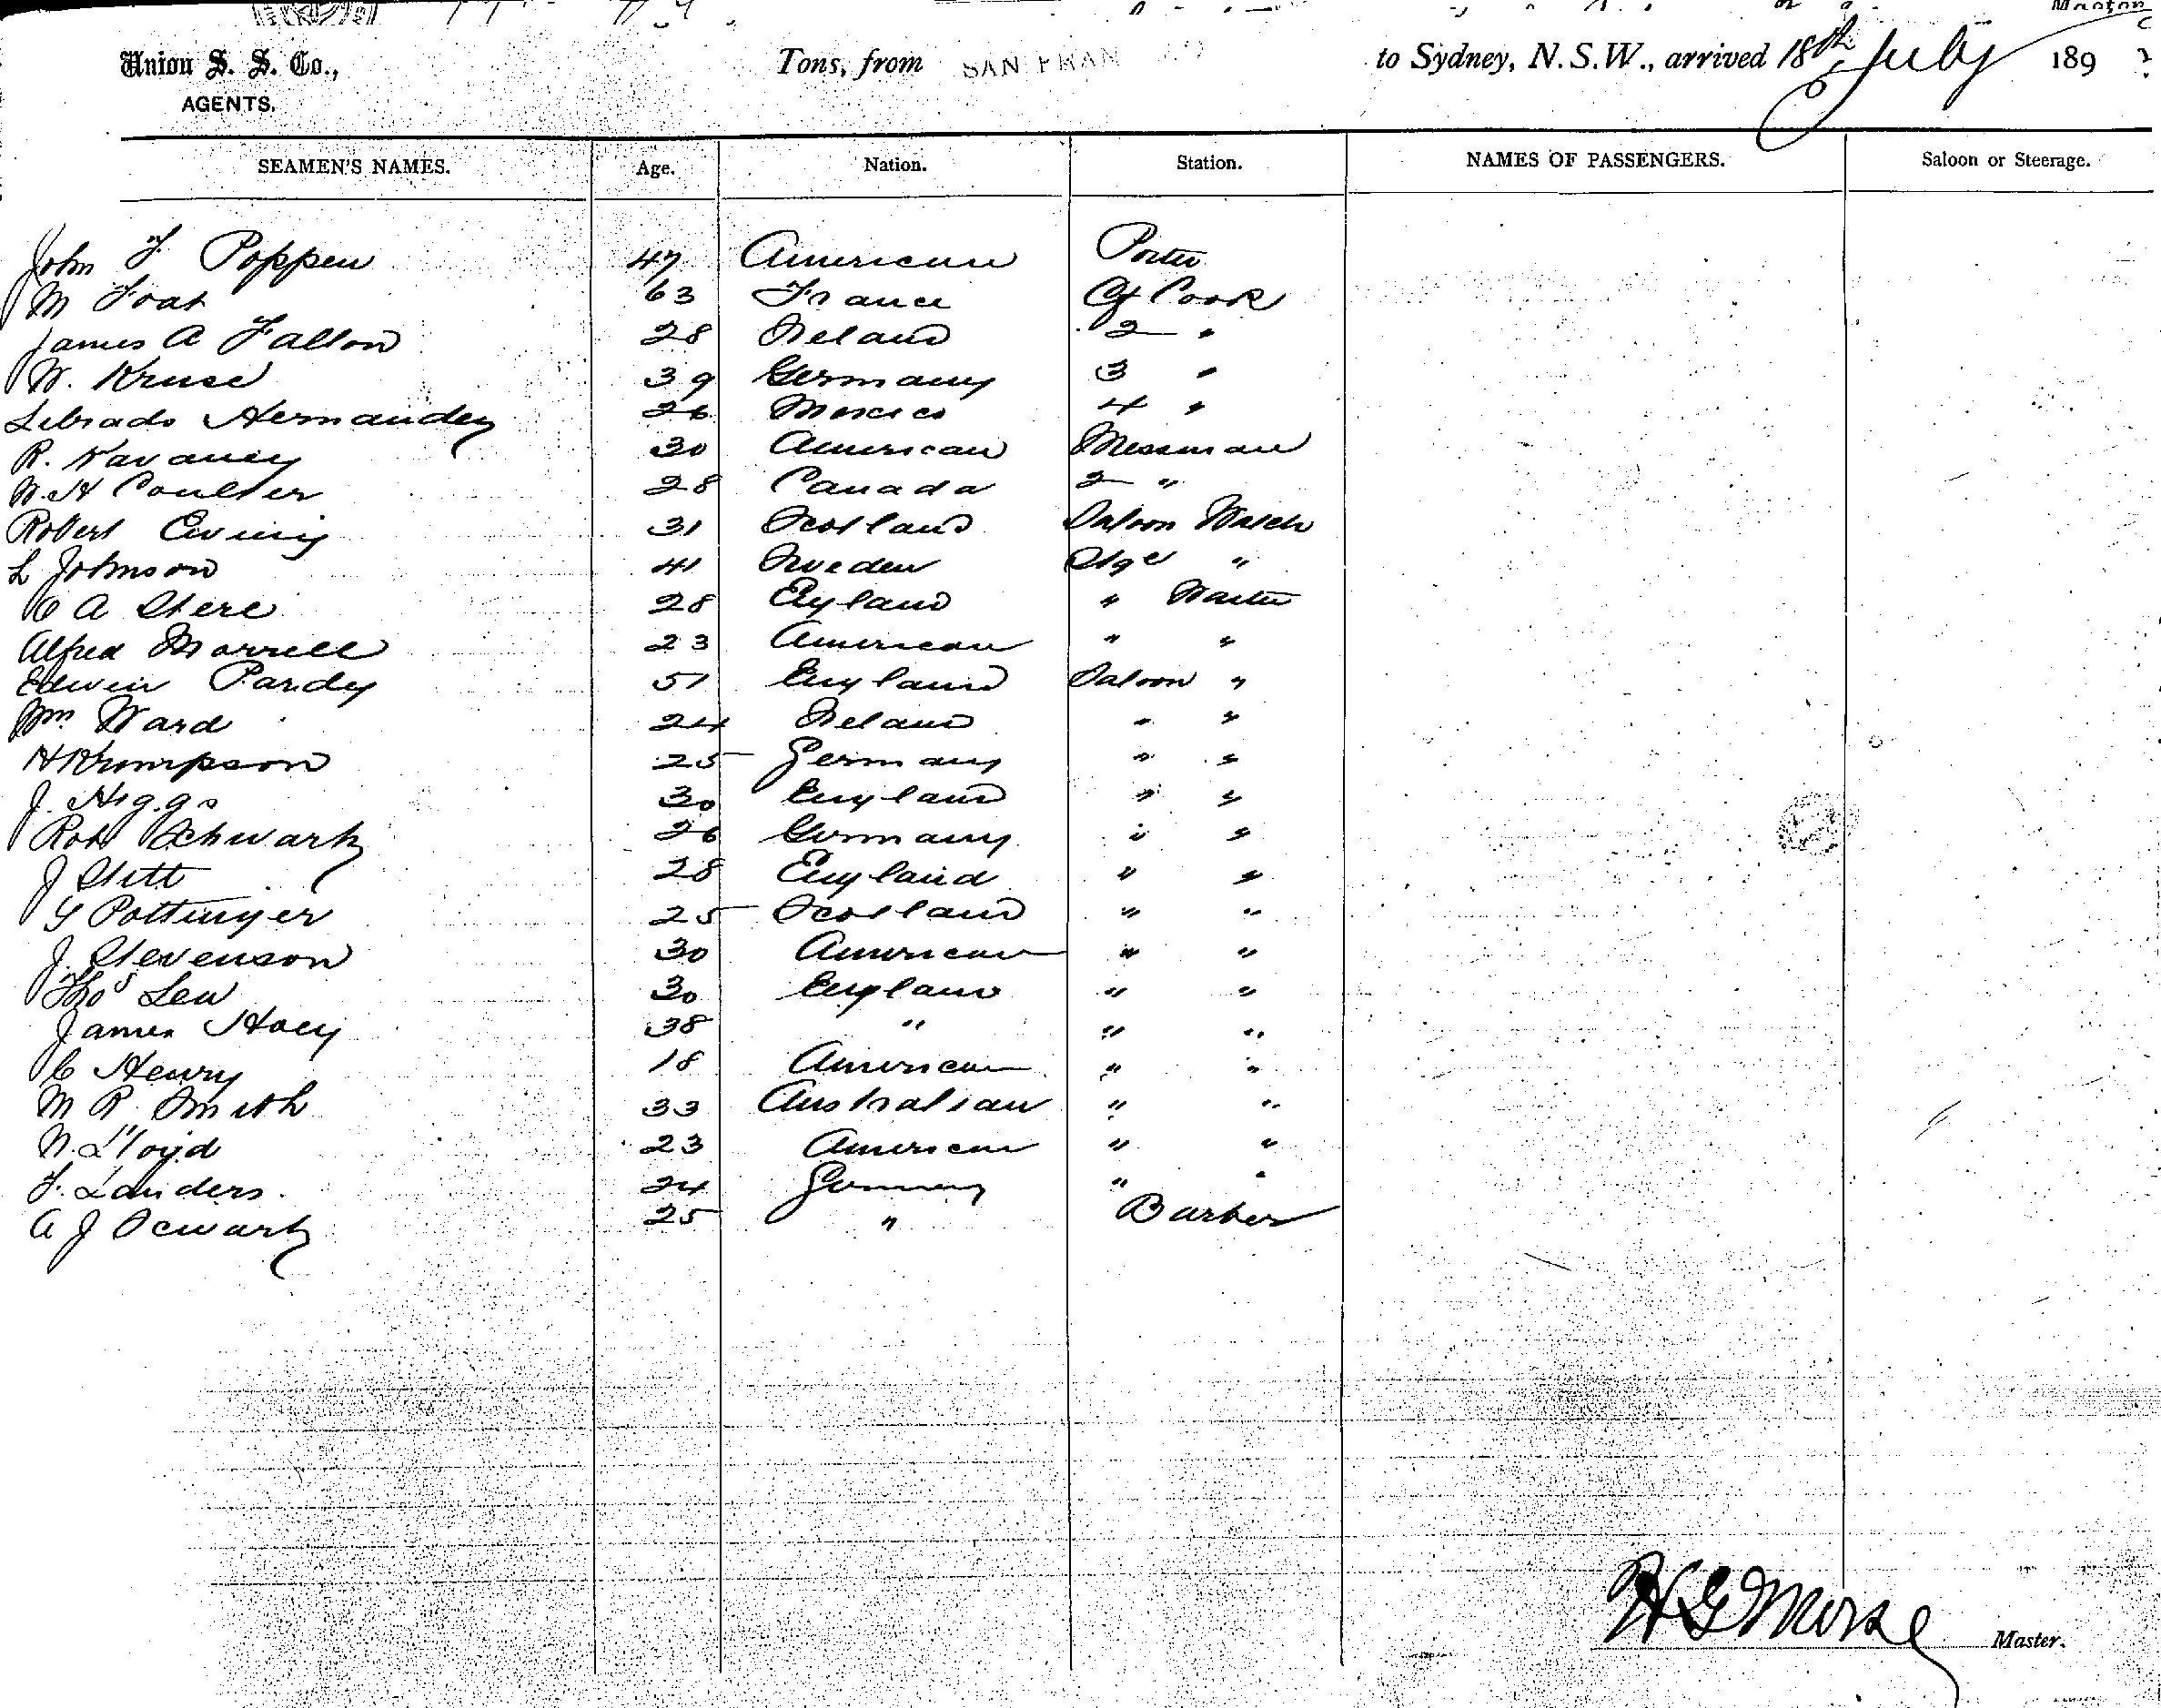 Union S. S. Co., Tons, from SAN FRAN to Sydney, N.S.W., arrived 18th July 189
AGENTS.
SEAMEN'S NAMES. Age. Nation. Station. NAMES OF PASSENGERS. Saloon or Steerage.
John F Poppen 47 American Porter
M 63 France Cf Cook
James A Fallon 28 Ireland 2 "
W. Kruse 39 Germany 3 "
Librado Hernandez 26 Mexico 4 "
R. Kavaney 30 American Messman
W. H Coulter 28 Canada 2 "
Robert Ewing 31 Scotland Saloon Watch
L Johnson 41 Sweden Stge "
C A Stere 28 England " Waiter
Alfred Morrell 23 American " "
Edwin Pardy 51 England Saloon "
Wm. Ward 24 Ireland " "
H Krompson 25 Germany " "
J. Higgs 30 England " "
Robt Schwartz 26 Germany " "
J Stitt 28 England " "
G Pottinger 25 Scotland " "
J. Stevenson 30 American " "
Thos Lew 30 England " "
James Hoey 38 " " "
C Henry 18 American " "
M R Smith 33 Australian " "
W. Lloyd 23 American " "
F. Landers. 24 Germany " "
A J Scwartz 25 " Barber
H G Morse Master.